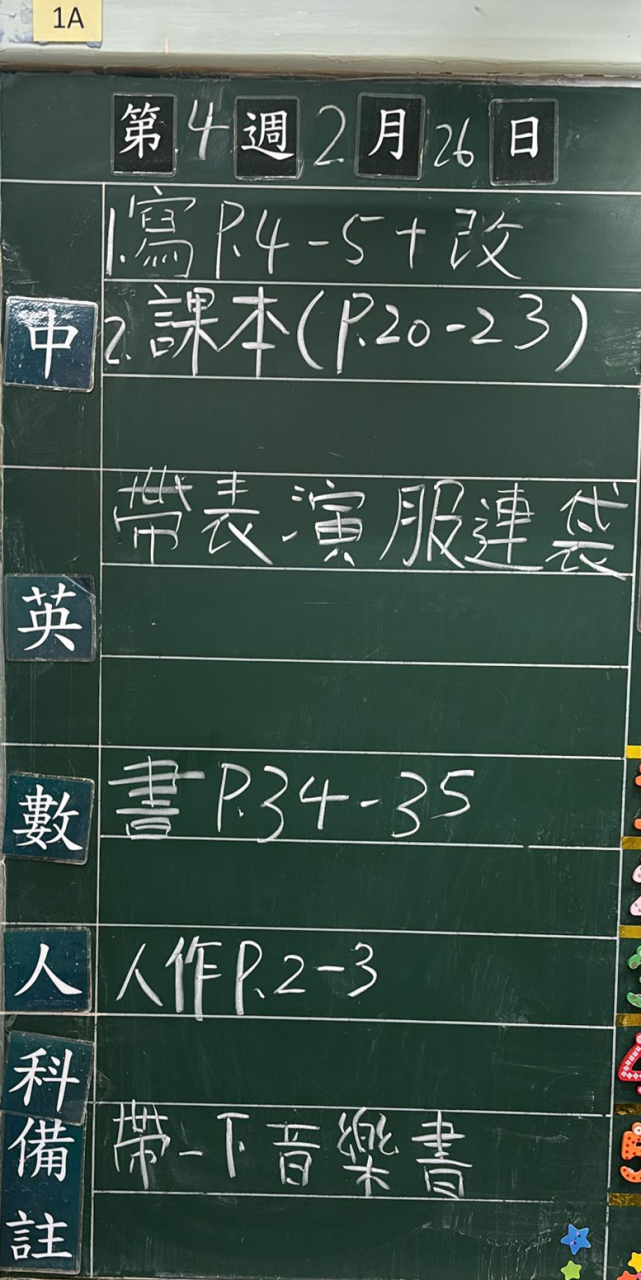 1A
第4週2月26日
中
1.寫P.4-5+改
2.課本(P.20-23)
英
帶表演服連袋
數
書P.34-35
人
人作P.2-3
科
備註
帶一下音樂書